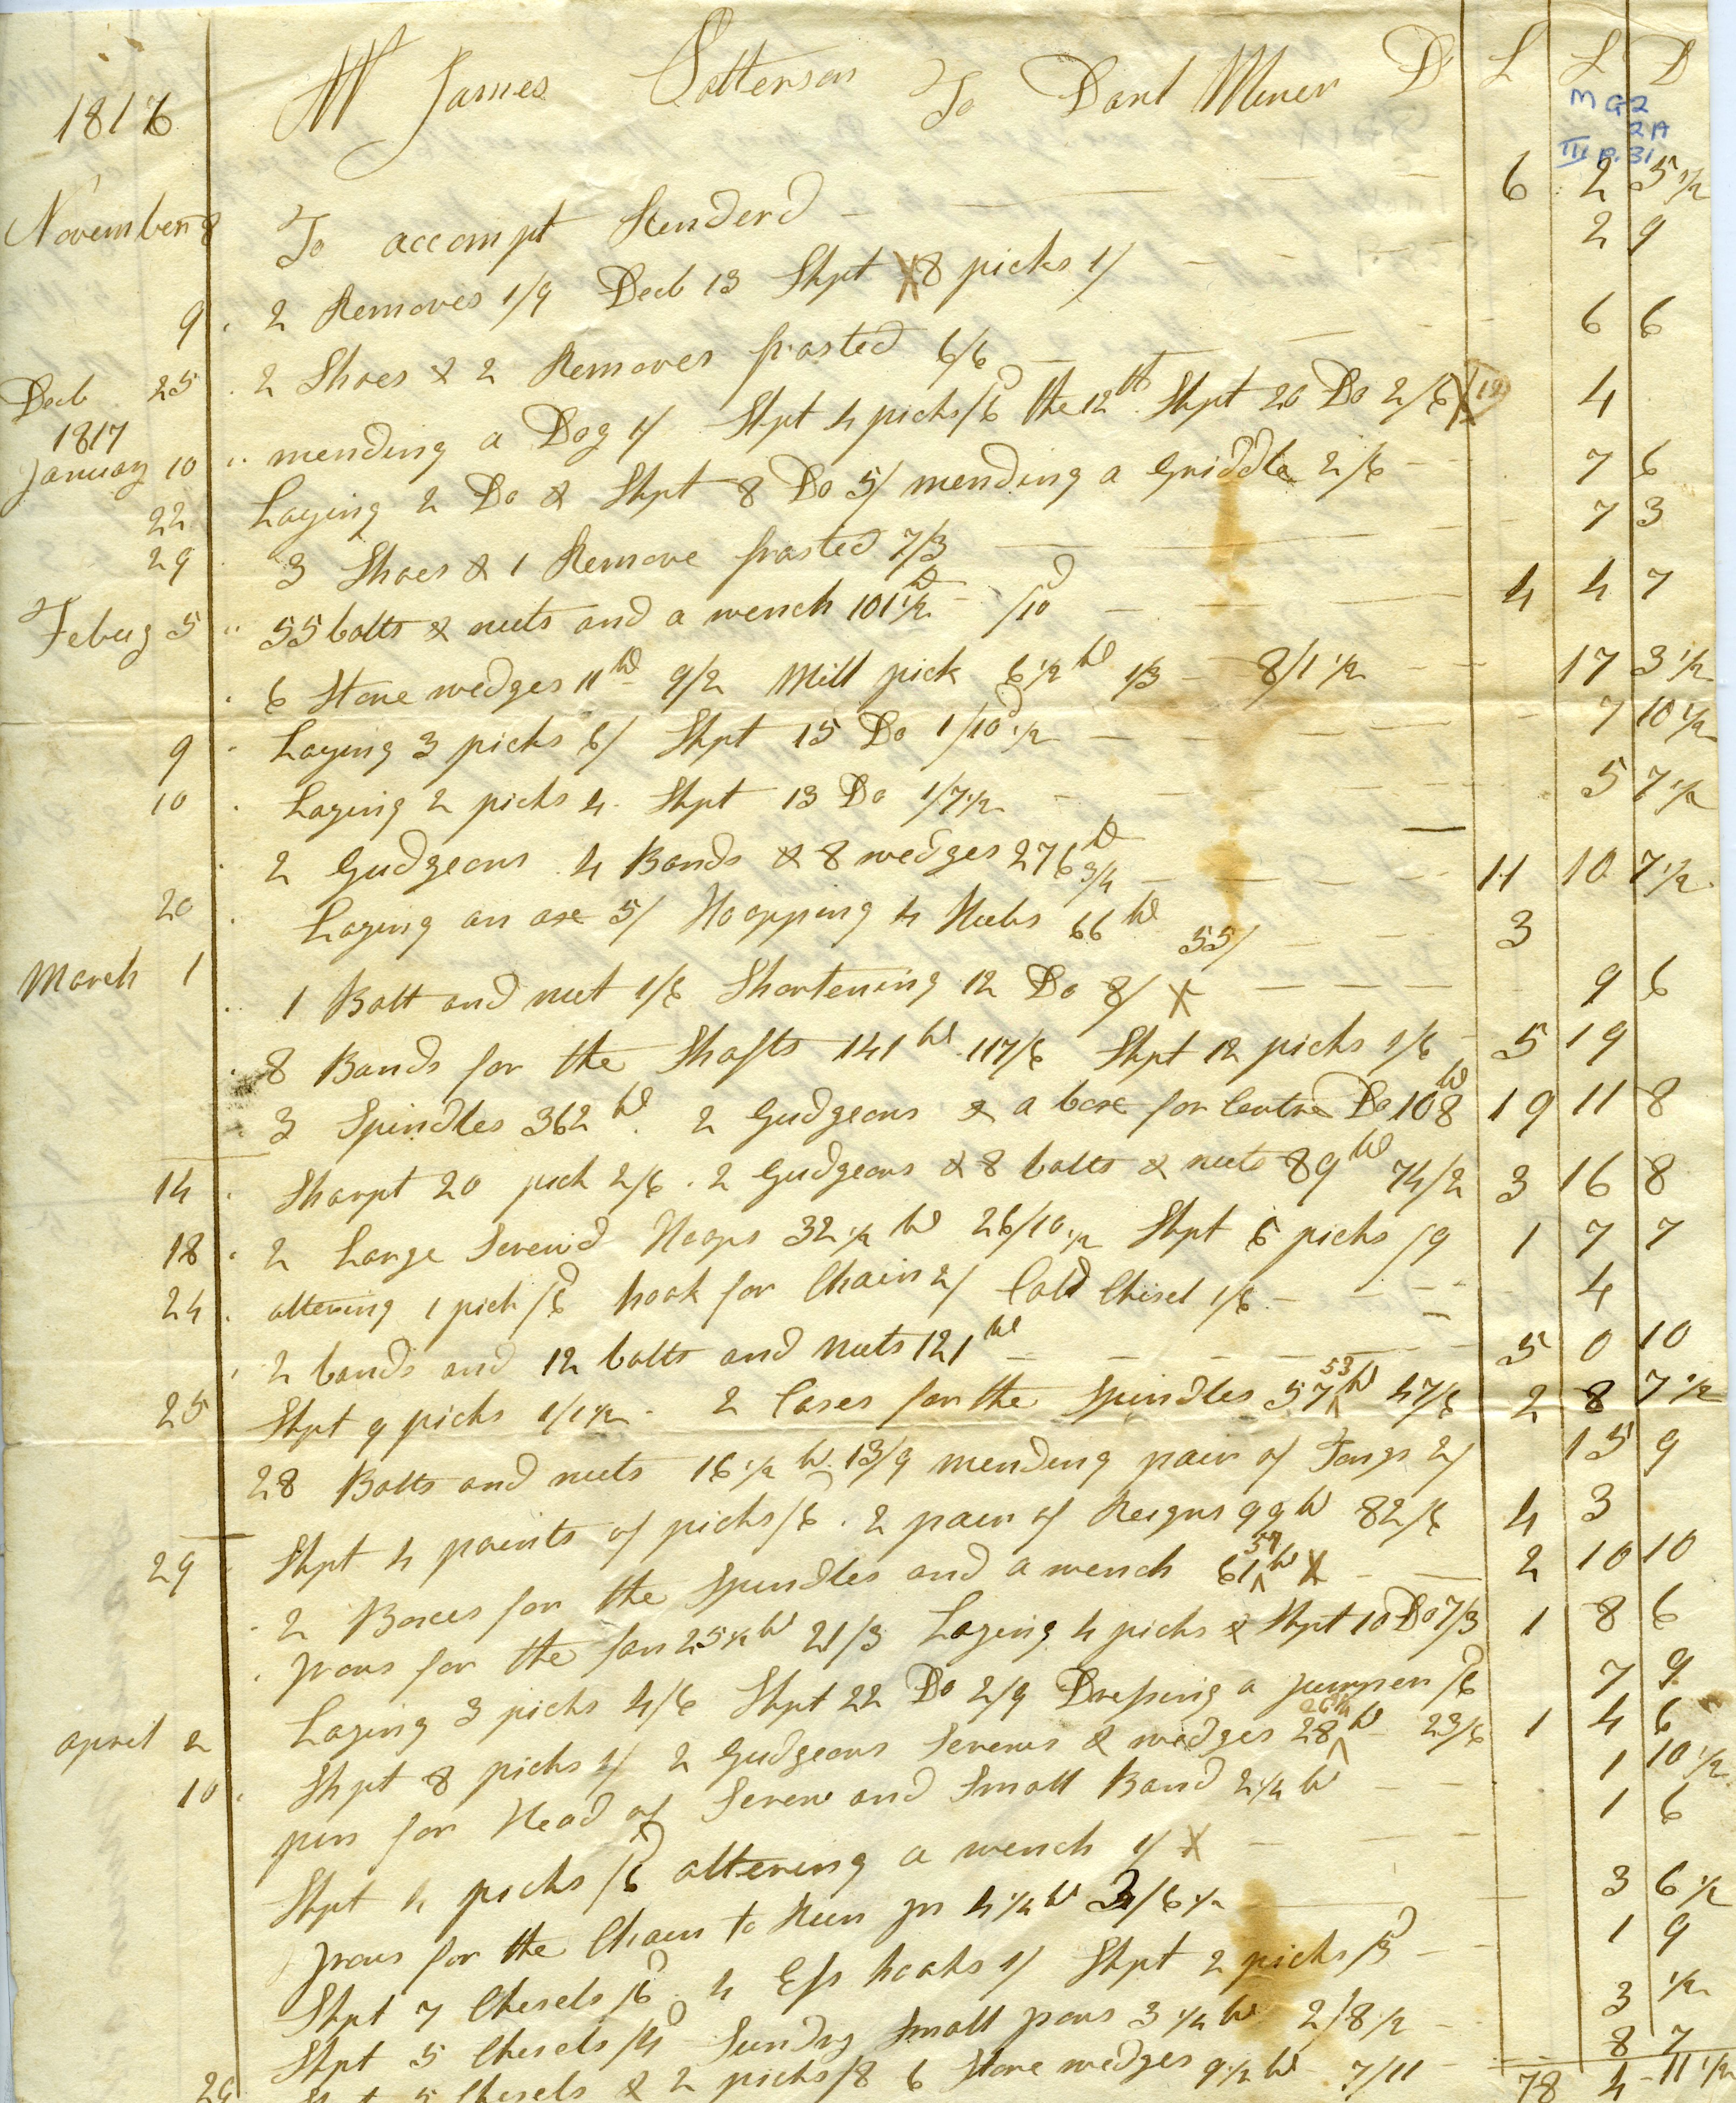 1816 Mr James Patterson To Danl Miner Dr L S D
MG2
2A
III p. 31
November 8 To accompt Renderd 6 2 5 1/2
9 2 Removes 1/9 Decb 13 Shpt 8 picks 1/ 2 9
Decb 25 2 Shoes & 2 Removes frosted 6/6 6 6
1817
January 10 mending a Dog 1/ Shpt 4 picks /6d the 12th Shpt 20 Do 2/6 4
22 Laying 2 Do & Shpt 8 Do 5/ mending a Griddle 2/6 7 6
29 3 Shoes & 1 Remove frosted 7/3 7 3
Febuy 5 55 bolts & nuts and a wench 101 1/2 W /10d 4 4 7
6 Stone wedges 11 W 9/2 Mill pick 6 1/2 W 1/3 8/1 1/2 17 3 1/2
9 Laying 3 picks 6/ Shpt 15 Do 1/10d 1/2 7 10 1/2
10 Laying 2 picks 4 Shpt 13 Do 1/7 1/2 5 7 1/2
2 Gudgeons 4 Bands & 8 wedges 276 3/4 W 11 10 7 1/2
20 Laying an axe 5/ Hoopping 4 Hubs 66 W 55/ 3
March 1 1 Bolt and nut 1/6 Shortening 12 Do 8/ X 9 6
8 Bands for the Shafts 141 W 117/6 Shpt 12 picks 1/6 5 19
3 Spindles 362 W 2 Gudgeons & a box for Centre Do 108 W 19 11 8
14 Sharpt 20 pick 2/6 2 Gudgeons & 8 bolts & nuts 89 W 74/2 3 16 8
18 2 Large Screwd Hoops 32 1/4 W 26/10 1/2 Shpt 6 picks /9 1 7 7
24 altering 1 pick /6d hook for Chain 2/ Cold Chisel 1/6 4
2 bands and 12 bolts and nuts 121 W 5 0 10
25 Shpt 9 picks 1/1 1/2 2 Cases for the Spindles 57 53 W 47/6 2 8 7 1/2
28 Bolts and nuts 16 1/2 W 13/9 mending pair of Tongs 2/ 15 9
29 Shpt 4 points of picks /6 2 pair of Reigns 99 W 82/6 4 3
2 Boxes for the Spindles and a wench 61 W X 2 10 10
jrons for the fan 25 1/2 W 21/3 Laying 4 picks & Shpt 10 Do 7/3 1 8 6
Laying 3 picks 4/6 Shpt 22 Do 2/9 Dressing a jumper /6d 7 9
april 2 Shpt 8 picks 1/ 2 Gudgeons Screws & wedges 28 W 23/6 1 4 6
10 pin for Head of Screw and Small Band 2 1/4 W 1 10 1/2
Shpt 4 picks /6d altering a wench 1/ X 1 6
jrons for the Chain to Run jn 4 1/4 W 3/6 1/2 3 6 1/2
Shpt 7 Chisels /6d 4 Ess hooks 1/ Shpt 2 picks /3d 1 9
Shpt 5 Chisels /4d Sundry Small jrons 3 1/4 W 2/8 1/2 3 1/2
5 Chisels & 2 picks /8 6 Stone wedges 9 1/2 W 7/11 8 7
78 4 11 1/2